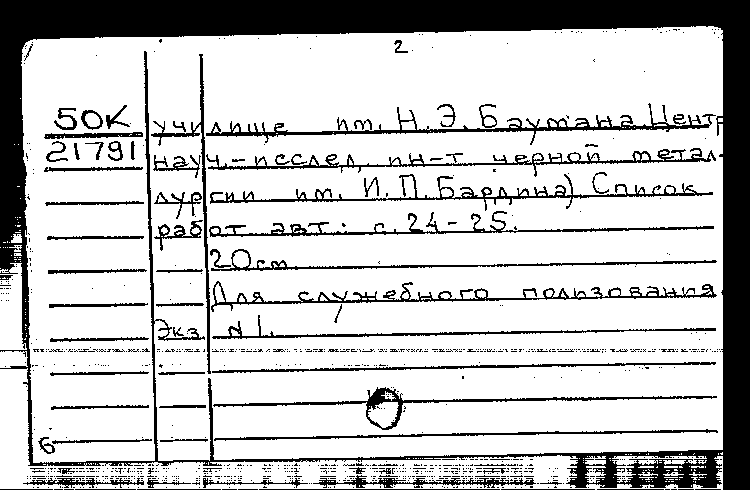 2
50К училище им. Н.Э. Баумана Центр
21791 науч.-исслед. ин-т черной метал-
лургии им. И.П. Бардина) Список
работ авт.: с. 24-25.
20см.
Для служебного пользования.
Экз. N 1.
6